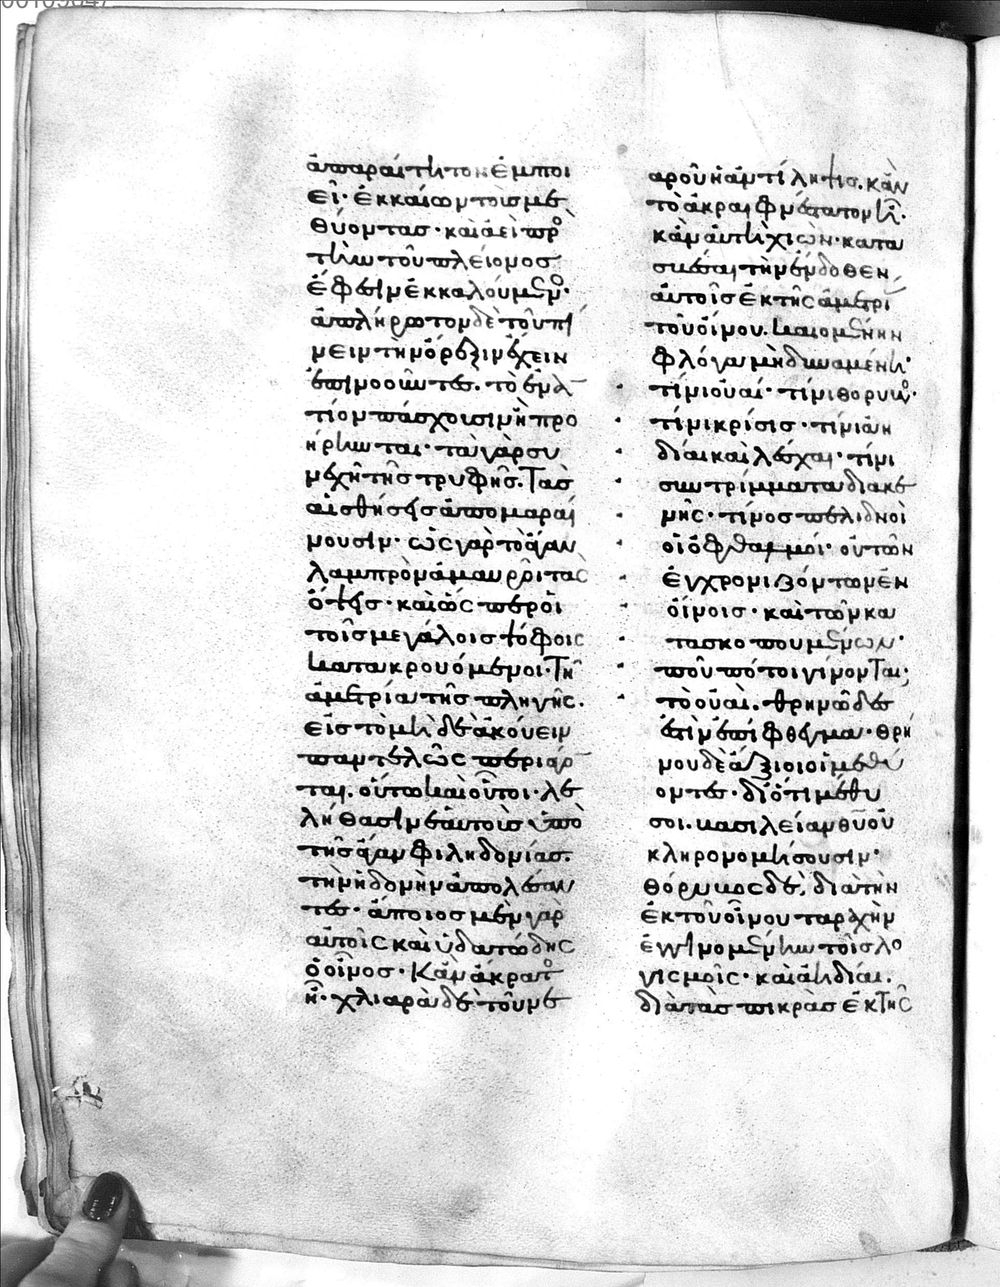 ἀπαραίτητον ἐμποι
εῖ· ἐκκαίων τοὺς με
θύοντας· καὶ ἀεὶ πρὸς
τὴν τοῦ πλείονος
ἔφεσιν ἐκκαλούμενος·
ἀπλήρωτον δὲ τοῦ πί
νειν τὴν ὄρεξιν ἔχειν
ἐπινοοῦντες. τὸ ἐναν
τίον πάσχουσιν ἢ προ
ήρηνται· τῶ γὰρ συ
νεχῆ τῆς τρυφῆς. Τὰς
αἰσθήσεις ἀπομαραί
νουσιν· ὡς γὰρ τὸ ἄγαν
λαμπρὸν ἀμαυροῖ τὰς
ὄψεις· καὶ ὡς περ οἱ
τοῖς μεγάλοις ψόφοις
κατακρουόμενοι· Τῆ
ἀμετρία τῆς πληγῆς.
εἰς τὸ μηδὲ ἀκούειν
παντελῶς περιίσταν
ται. οὕτω καὶ οὗτοι· λε
λήθασιν ἑαυτοὺς ὑπὸ
τῆς ἄγαν φιληδονίας.
τὴν ἡδονὴν ἀπολέσαν
τες· ἄποιος μὲν γὰρ
αὐτοῖς καὶ ὑδατώδης
ὁ οἶνος· Κἂν ἄκρατος
ἦ· χλιαρὰ δὲ τοῦ νε
αροῦ ἡ ἀντίληψις. κἂν
τὸ ἀκραιφνέστατον ἦ.
κἂν αὐτὴ χιὼν· κατα
σβέσαι τὴν ἔνδοθεν
αὐτοῖς ἐκ τῆς ἀμετρί
τοῦ οἴνου. καιομένην
φλόγα μὴ δυναμένη·
τίνι οὐαί· τίνι θόρυβος·
τίνι κρίσις· τίνι ἀη
δίαι καὶ λέσχαι· τίνι
συντρίμματα διακε
νῆς· τίνος πελιδνοὶ
οἱ ὀφθαλμοί· οὐ τῶν
ἐγχρονιζόντων ἐν
οἴνοις· καὶ τῶν κα
τασκοπουμένων·
ποῦ πότοι γίνονται;
τὸ οὐαὶ. θρηνῶδες
ἐστὶν ἐπίφθεγμα· θρή
νου δὲ ἄξιοι οἱ μεθύ
οντες· διότι μέθυ
σοι. βασιλείαν θῦ οὐ
κληρονομήσουσιν·
θόρυβος δὲ, διὰ τὴν
ἐκ τοῦ οἴνου ταραχὴν
ἐγγινομένην τοῖς λο
γισμοῖς· καὶ ἀηδίαι.
διὰ τὰς πικρὰς ἐκ τῆς